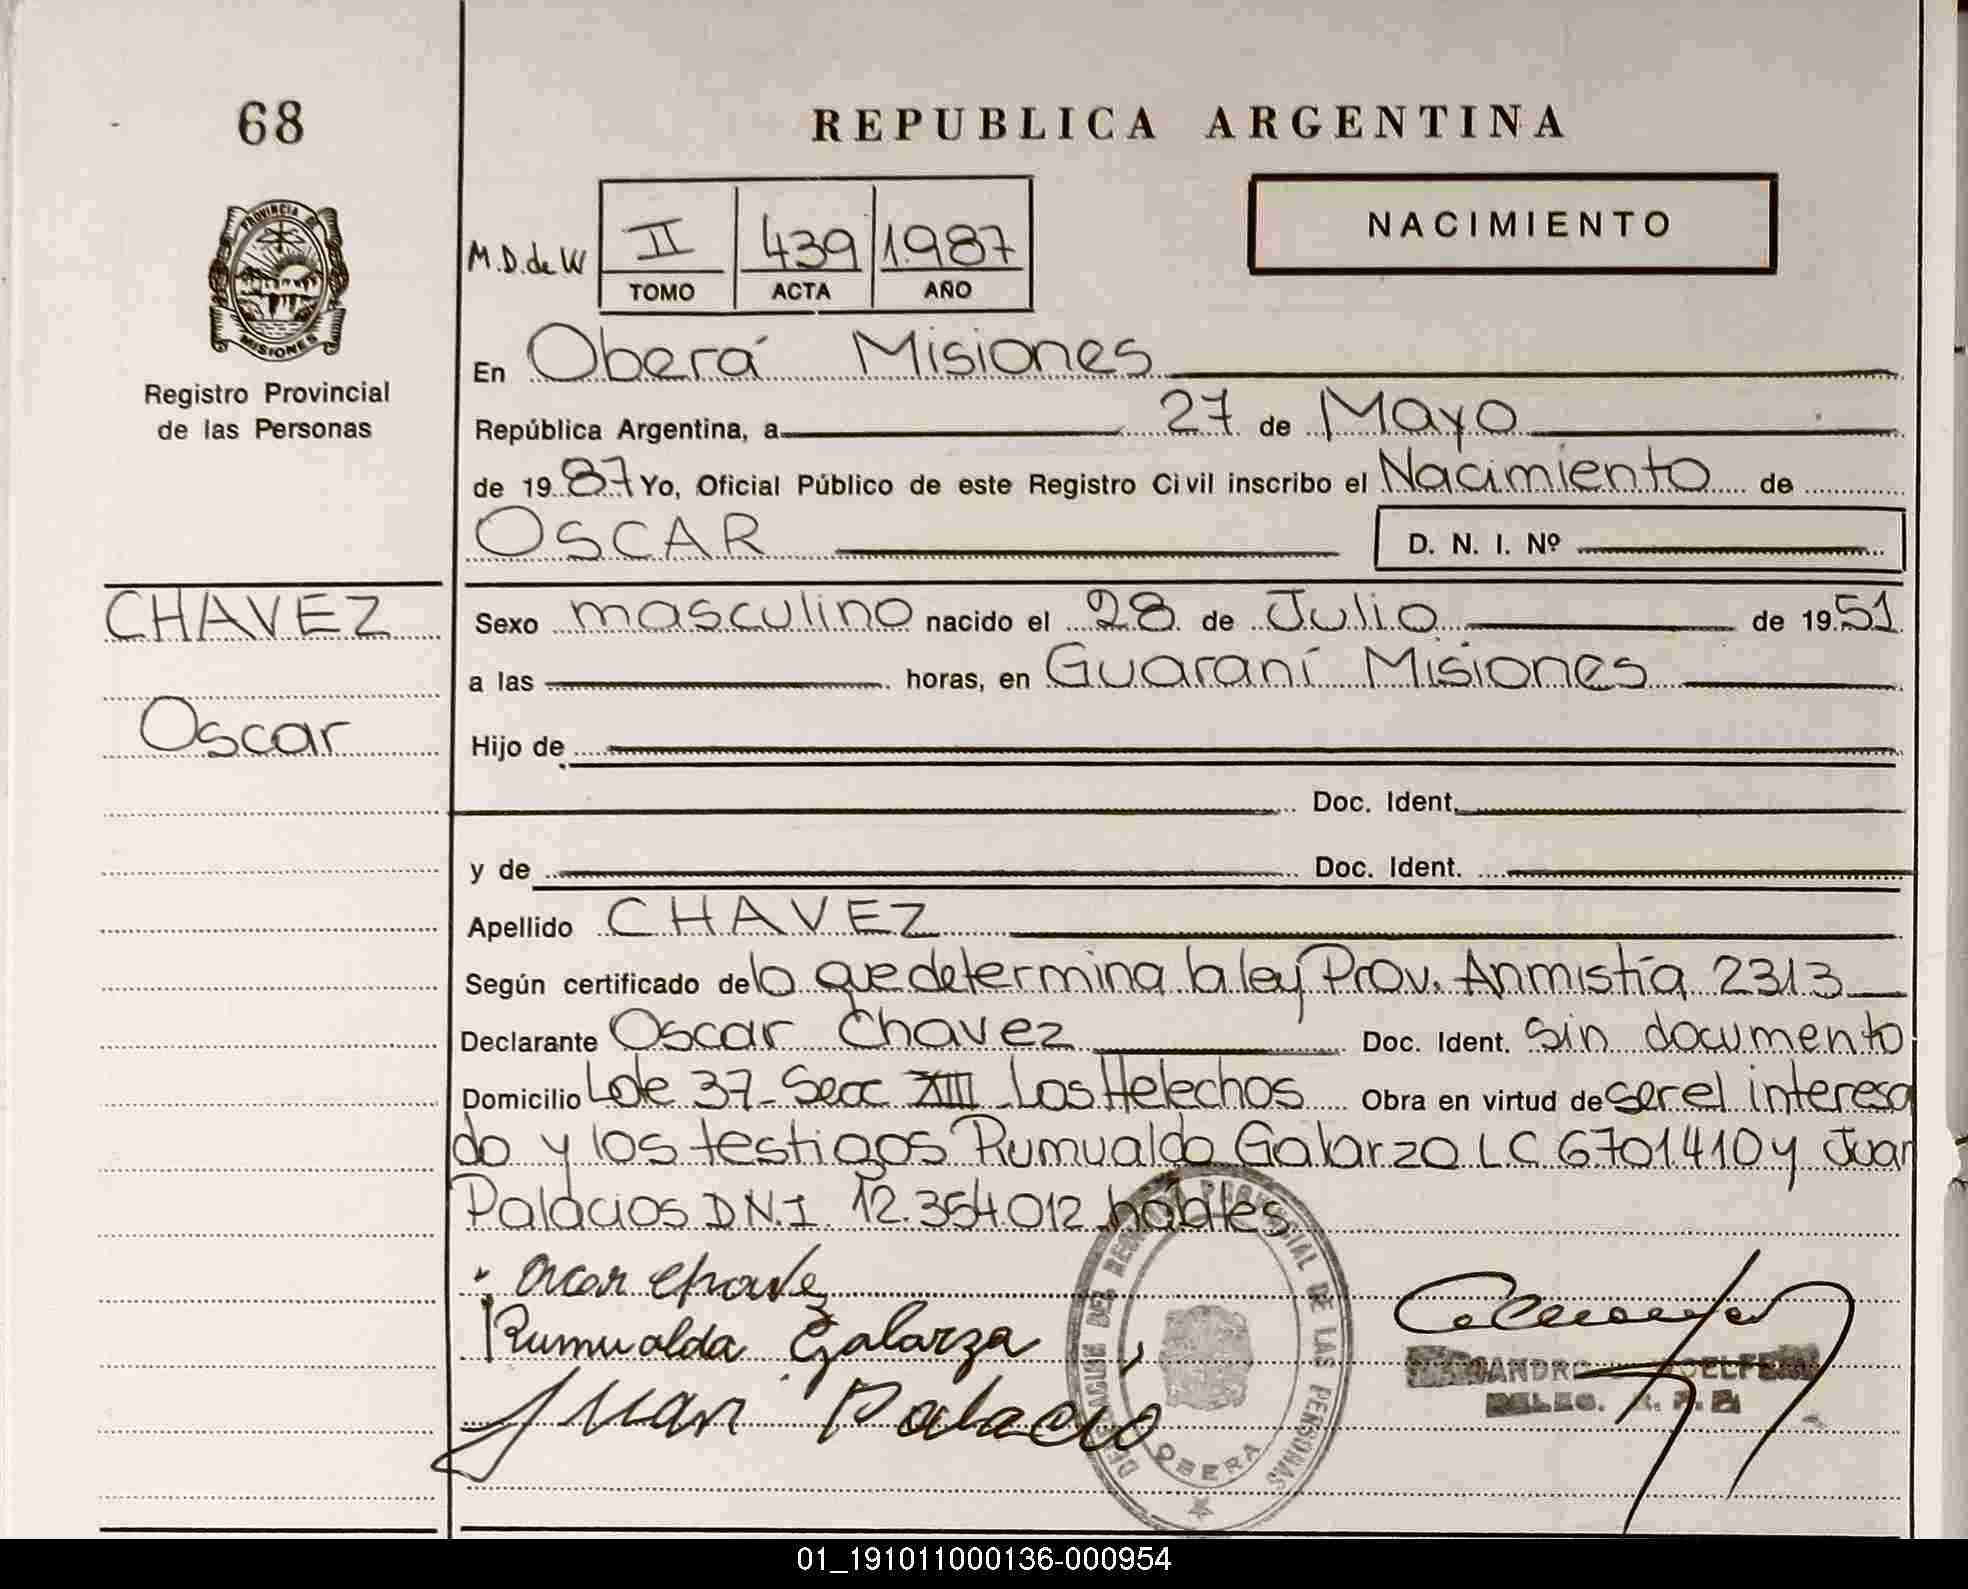 68
REPUBLICA ARGENTINA
PROVINCIA DE
MISIONES
Registro Provincial
de las Personas
NACIMIENTO
M.D.de W II 439 1987
TOMO ACTA AÑO
En Oberá Misiones
República Argentina, a 27 de Mayo
de 1987 Yo, Oficial Público de este Registro Civil inscribo el Nacimiento de
OSCAR D. N. I. Nº
CHAVEZ
Oscar
Sexo masculino nacido el 28 de Julio de 1951
a las horas, en Guaraní Misiones
Hijo de
Doc. Ident.
y de Doc. Ident.
Apellido CHAVEZ
Según certificado de lo que determina la ley Prov. Anmistía 2313
Declarante Oscar Chavez Doc. Ident. sin documento
Domicilio Lote 37-Secc XIII Los Helechos Obra en virtud de ser el interesa
do y los testigos Rumualdo Galarzo LC 6701410 y Juan
Palacios D.N.I 12.354.012 habiles
Oscar Chavez
Rumualda Galarza
Juan Palacio
DEL REGISTRO PROVINCIAL DE LAS PERSONAS
OBERA
DELEG.
01_191011000136-000954